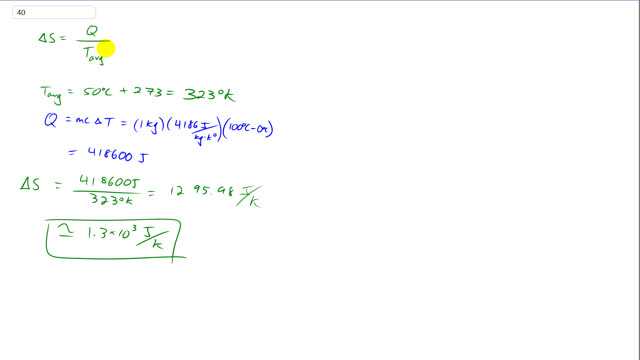 40
ΔS = Q / Tavg
Tavg = 50°C + 273 = 323°K
Q = mcΔT = (1kg)(4186 J/kg·k°)(100°C-0°C)
= 418600 J
ΔS = 418600J / 323°K = 1295.98 J/K
≃ 1.3×10³ J/K